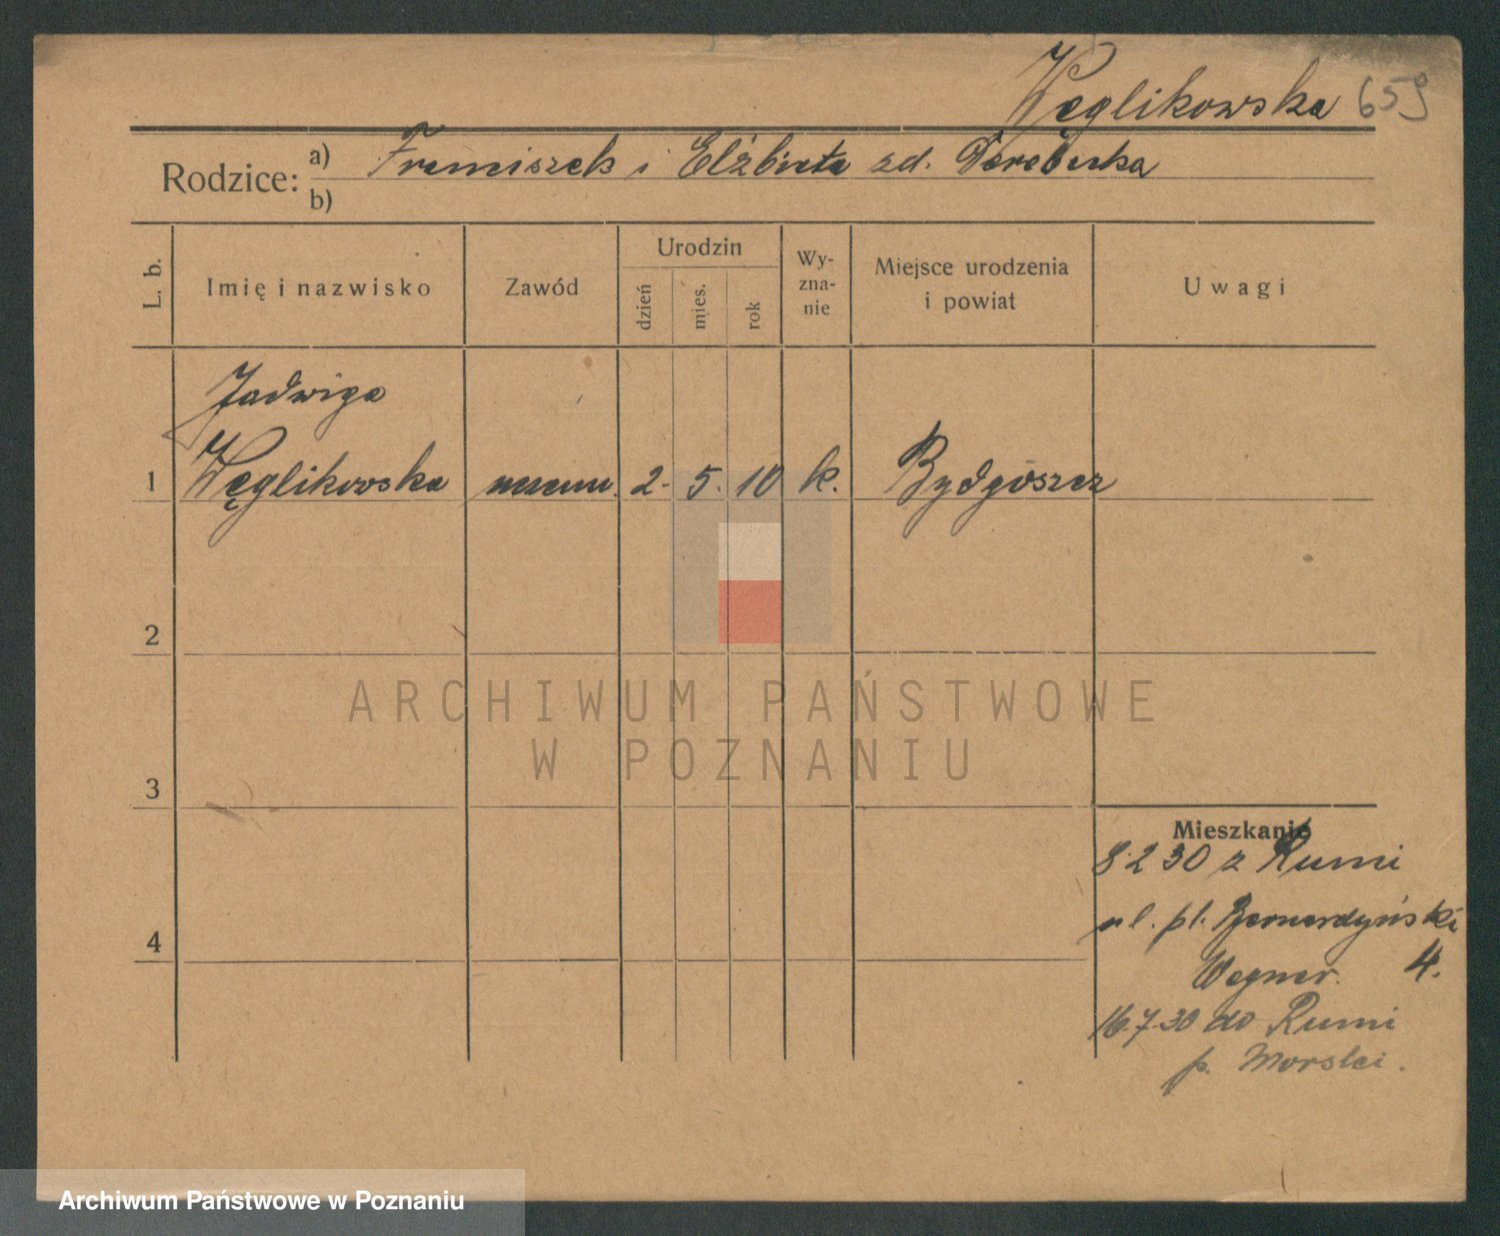 Węglikowska 659
Rodzice: a) Franciszek i Elżbieta zd. Derebecka
b)
L. b. Imię i nazwisko Zawód Urodzin dzień mies. rok Wy-zna-nie Miejsce urodzenia i powiat Uwagi
Jadwiga
1 Węglikowska 2. 5. 10 k. Bydgoszcz
2
ARCHIWUM PAŃSTWOWE
W POZNANIU
3
Mieszkanie
8.2 30 z Rumi
4 ul. pl. Bernardyński
Wegner. 4.
16.7.30 do Rumi
p. Morski.
Archiwum Państwowe w Poznaniu